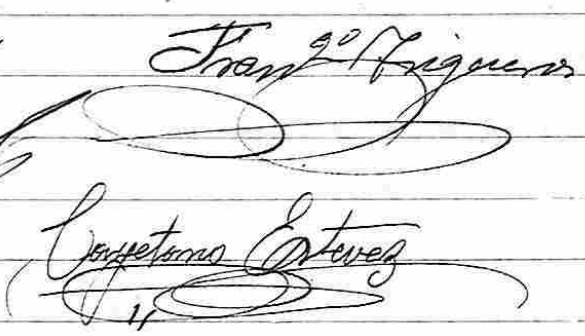 Fran^co Trigueros
Cayetano Estevez